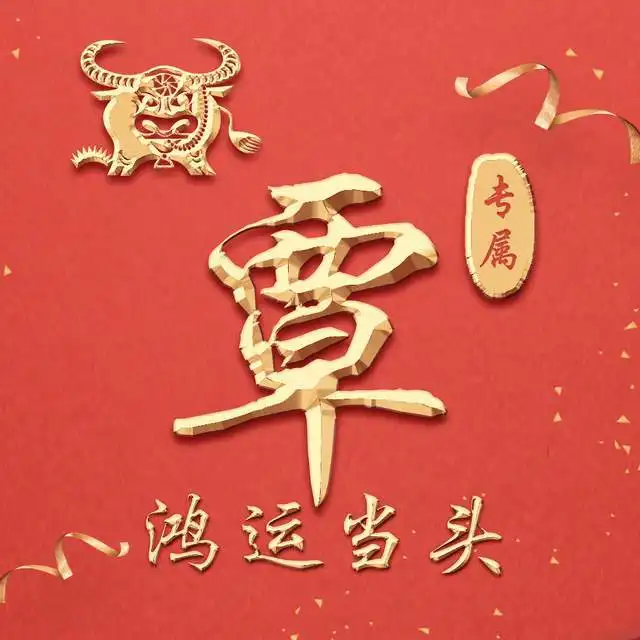 专属
覃
鸿运当头